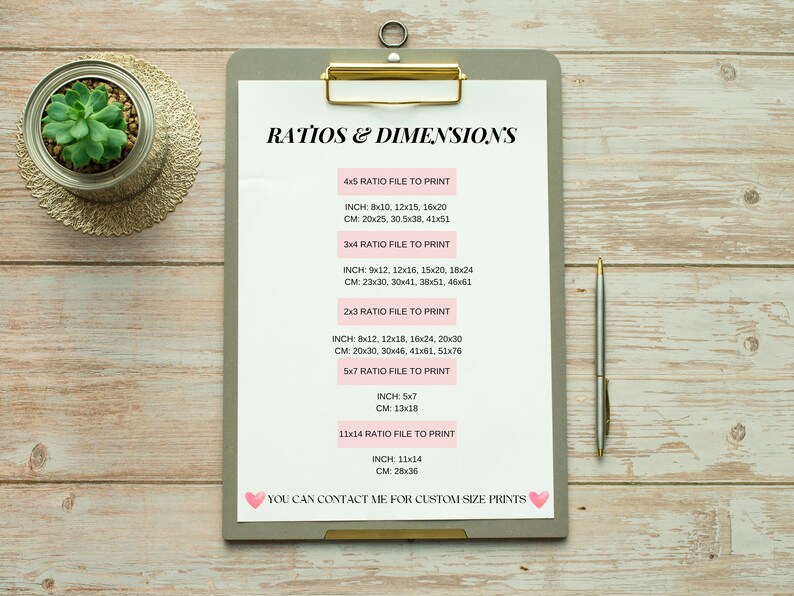 RATIOS & DIMENSIONS
4x5 RATIO FILE TO PRINT
INCH: 8x10, 12x15, 16x20
CM: 20x25, 30.5x38, 41x51
3x4 RATIO FILE TO PRINT
INCH: 9x12, 12x16, 15x20, 18x24
CM: 23x30, 30x41, 38x51, 46x61
2x3 RATIO FILE TO PRINT
INCH: 8x12, 12x18, 16x24, 20x30
CM: 20x30, 30x46, 41x61, 51x76
5x7 RATIO FILE TO PRINT
INCH: 5x7
CM: 13x18
11x14 RATIO FILE TO PRINT
INCH: 11x14
CM: 28x36
YOU CAN CONTACT ME FOR CUSTOM-SIZE PRINTS